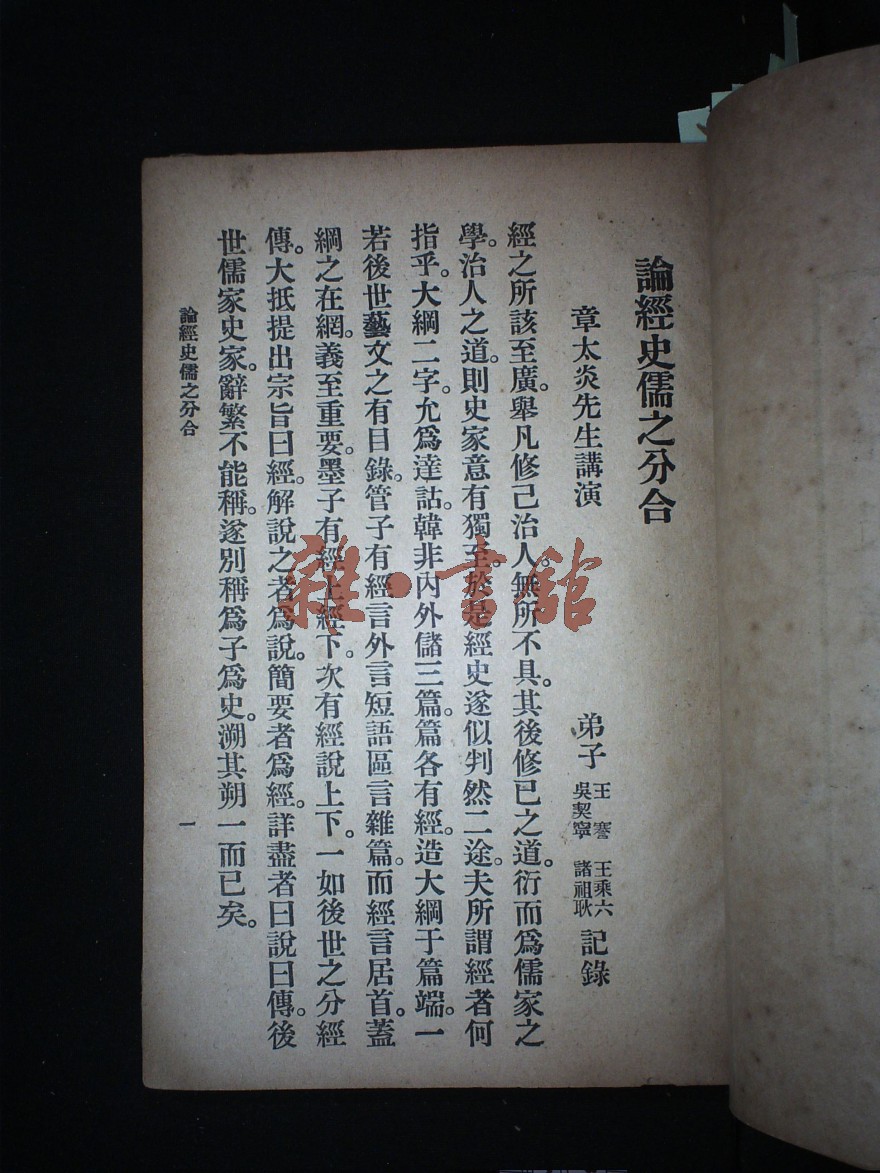 論經史儒之分合
章太炎先生講演 弟子 王謇 王乘六 吳契寧 諸祖耿 記錄
經之所該至廣。舉凡修己治人。無所不具。其後修已之道。衍而爲儒家之
學。治人之道。則史家意有獨至。於是經史遂似判然二途。夫所謂經者何
指乎。大綱二字。允爲達詁。韓非內外儲三篇。篇各有經。造大綱于篇端。一
若後世藝文之有目錄。管子有經言外言短語區言雜篇。而經言居首。蓋
綱之在網。義至重要。墨子有經上經下。次有經說上下。一如後世之分經
傳。大抵提出宗旨曰經。解說之者爲說。簡要者爲經。詳盡者曰說曰傳。後
世儒家史家。辭繁不能稱。遂別稱爲子爲史。溯其朔一而已矣。
論經史儒之分合
一
雜·書館